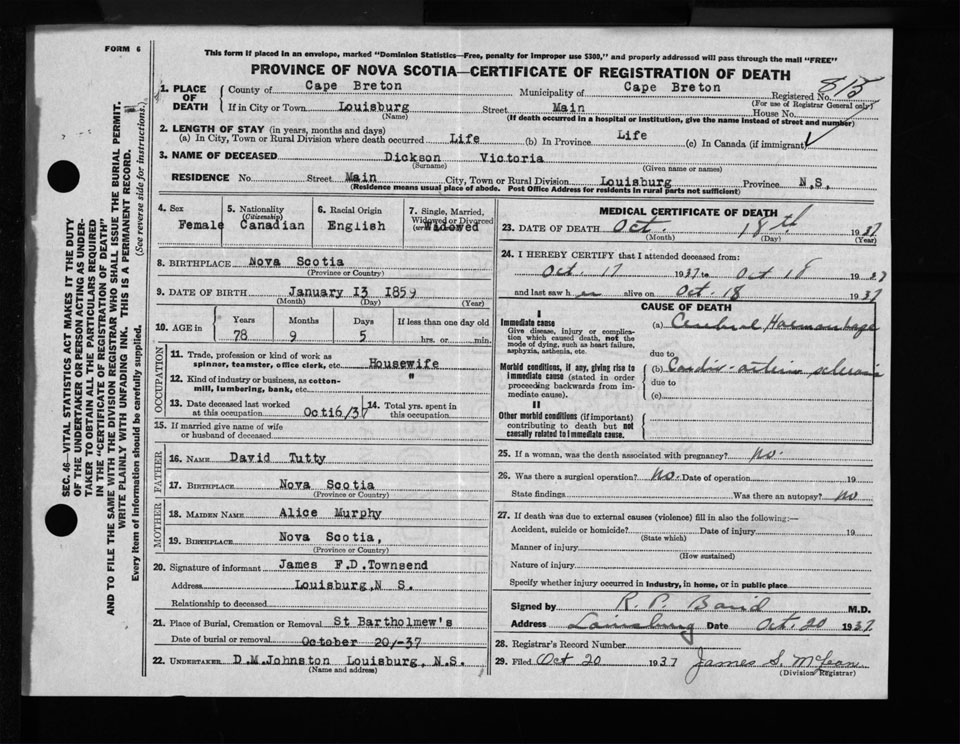 FORM 6
This form if placed in an envelope, marked "Dominion Statistics—Free, penalty for improper use $300," and properly addressed will pass through the mail "FREE"
PROVINCE OF NOVA SCOTIA—CERTIFICATE OF REGISTRATION OF DEATH
SEC. 46—VITAL STATISTICS ACT MAKES IT THE DUTY
OF THE UNDERTAKER OR PERSON ACTING AS UNDER-
TAKER TO OBTAIN ALL THE PARTICULARS REQUIRED
IN THE "CERTIFICATE OF REGISTRATION OF DEATH"
AND TO FILE THE SAME WITH THE DIVISION REGISTRAR WHO SHALL ISSUE THE BURIAL PERMIT.
WRITE PLAINLY WITH UNFADING INK. THIS IS A PERMANENT RECORD.
Every item of information should be carefully supplied. (See reverse side for instructions).
1. PLACE OF DEATH
County of Cape Breton Municipality of Cape Breton Registered No. 815
(For use of Registrar General only)
If in City or Town Louisburg Street Main House No.
(Name) (If death occurred in a hospital or institution, give the name instead of street and number)
2. LENGTH OF STAY (in years, months and days)
(a) In City, Town or Rural Division where death occurred Life (b) In Province Life (c) In Canada (if immigrant)
3. NAME OF DECEASED Dickson Victoria
(Surname) (Given name or names)
RESIDENCE No. Street Main City, Town or Rural Division Louisburg Province N.S.
(Residence means usual place of abode. Post Office Address for residents in rural parts not sufficient)
4. Sex Female
5. Nationality (Citizenship) Canadian
6. Racial Origin English
7. Single, Married, Widowed or Divorced Widowed
8. BIRTHPLACE Nova Scotia
(Province or Country)
9. DATE OF BIRTH January 13 1859
(Month) (Day) (Year)
10. AGE in Years Months Days If less than one day old
78 9 5 hrs. or min.
OCCUPATION
11. Trade, profession or kind of work as
spinner, teamster, office clerk, etc. Housewife
12. Kind of industry or business, as cotton-
mill, lumbering, bank, etc. "
13. Date deceased last worked
at this occupation Oct16/37
14. Total yrs. spent in
this occupation
15. If married give name of wife
or husband of deceased
FATHER
16. NAME David Tutty
17. BIRTHPLACE Nova Scotia
(Province or Country)
MOTHER
18. MAIDEN NAME Alice Murphy
19. BIRTHPLACE Nova Scotia,
(Province or Country)
20. Signature of informant James F.D.Townsend
Address Louisburg,N S.
Relationship to deceased
21. Place of Burial, Cremation or Removal St Bartholmew's
Date of burial or removal October 20/-37
22. UNDERTAKER D.M.Johnston Louisburg, N.S.
(Name and address)
MEDICAL CERTIFICATE OF DEATH
23. DATE OF DEATH Oct. 18th 1937
(Month) (Day) (Year)
24. I HEREBY CERTIFY that I attended deceased from:
Oct. 17 1937 to Oct 18 1937
and last saw her alive on Oct. 18 1937
CAUSE OF DEATH
I
Immediate cause
Give disease, injury or complica-
tion which caused death, not the
mode of dying, such as heart failure,
asphyxia, asthenia, etc.
(a) Cerebral Haemorrhage
due to
Morbid conditions, if any, giving rise to
immediate cause (stated in order
proceeding backwards from im-
mediate cause).
(b) Cardio-arterio sclerosis
due to
(c)
II
Other morbid conditions (if important)
contributing to death but not
causally related to immediate cause.
25. If a woman, was the death associated with pregnancy? no.
26. Was there a surgical operation? No. Date of operation 19
State findings Was there an autopsy? no
27. If death was due to external causes (violence) fill in also the following:—
Accident, suicide or homicide? Date of injury 19
(State which)
Manner of injury
(How sustained)
Nature of injury
Specify whether injury occurred in Industry, in home, or in public place
Signed by R. P. Baird M.D.
Address Louisburg Date Oct. 20 1937
28. Registrar's Record Number
29. Filed Oct 20 1937 James S. McLean
(Division Registrar)